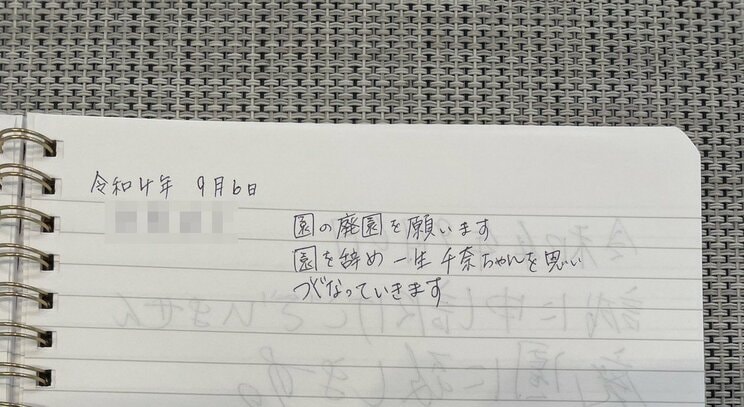 令和4年 9月6日
園の廃園を願います
園を辞め 一生 千奈ちゃんを思い
つぐなっていきます